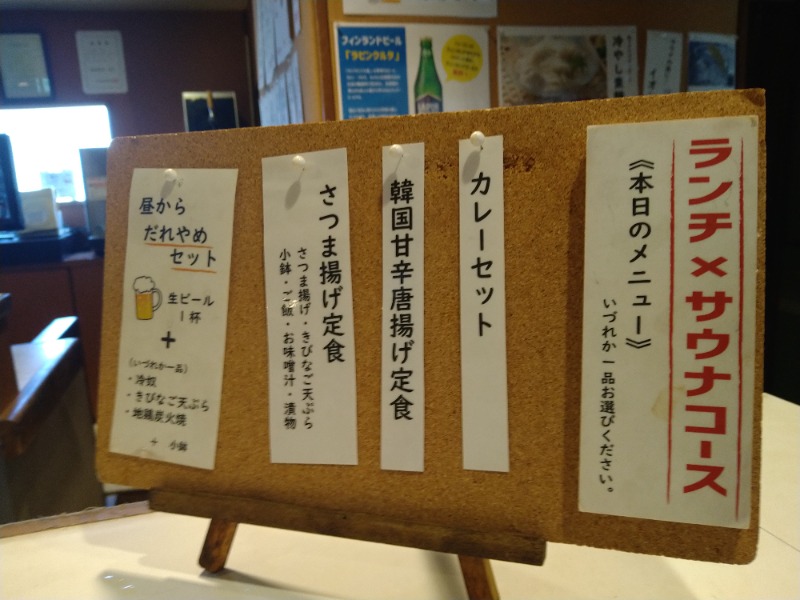 ランチ×サウナコース
《本日のメニュー》
いづれか一品お選びください。
カレーセット
韓国甘辛唐揚げ定食
さつま揚げ定食
さつま揚げ・きびなご天ぷら
小鉢・ご飯・お味噌汁・漬物
昼から
だれやめ
セット
生ビール
1杯
+
(いづれか一品)
・冷奴
・きびなご天ぷら
・地鶏炭火焼
+ 小鉢
フィンランドビール
「ラピンクルタ」
冷やし